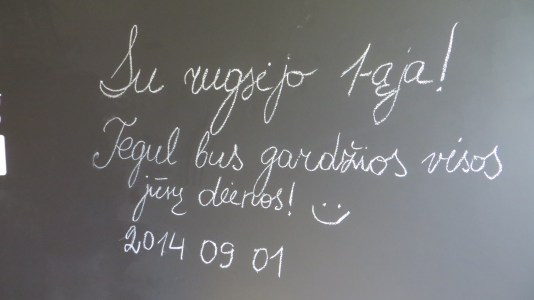 Su rugsėjo 1-ąja!
Tegul bus gardžios visos
jūsų dienos!
2014 09 01